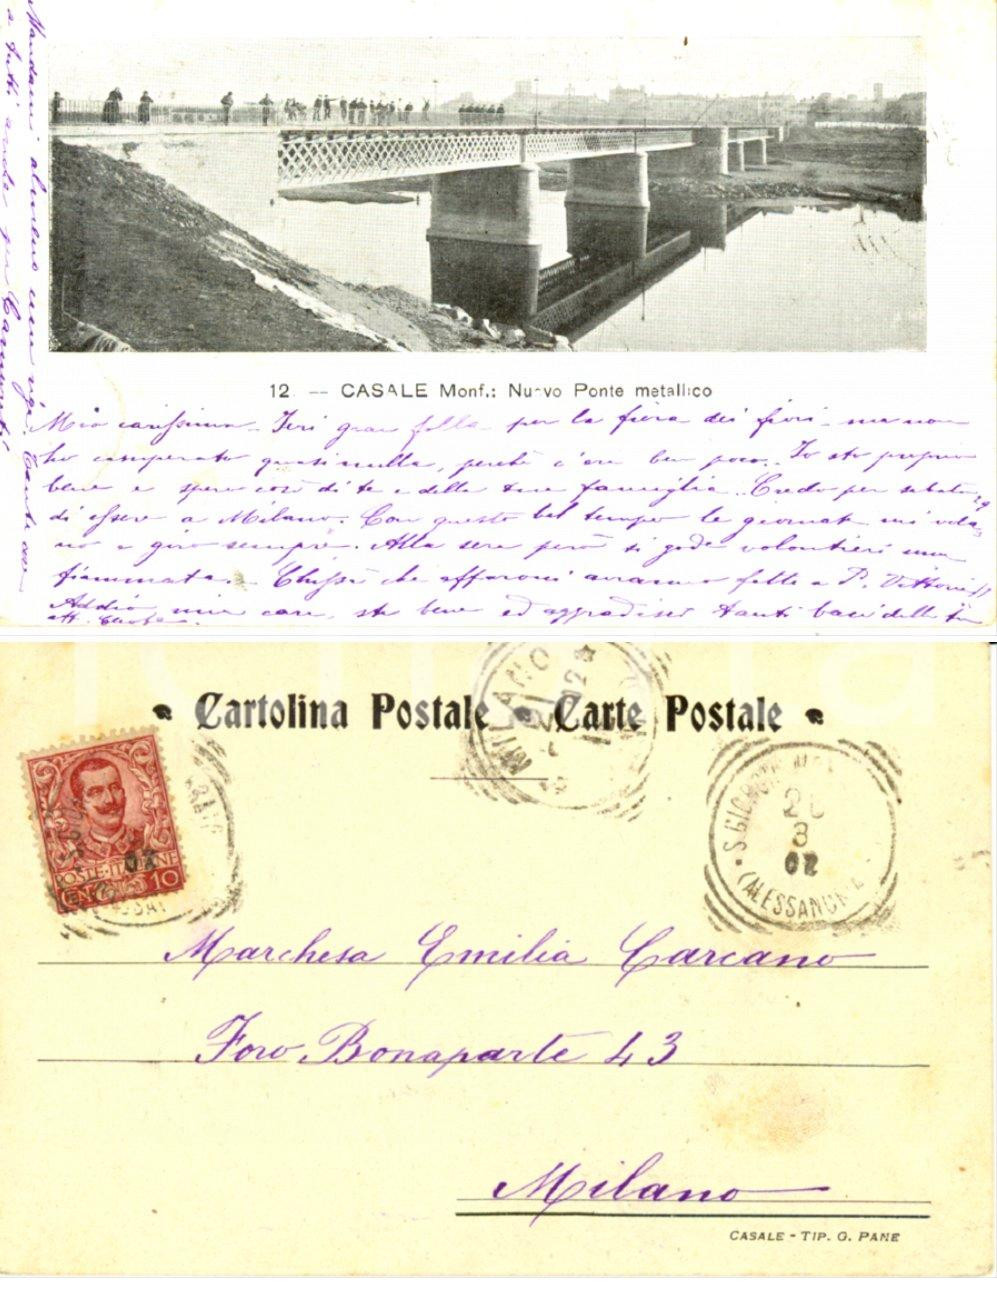 12. -- CASALE Monf.: Nuovo Ponte metallico
Mandami almeno una riga. Tante cose
a tutti anche per
Mia carissima - Ieri gran folla per la fiera dei fiori - ma non
ho comperato quasi nulla, perchè c'era ben poco. Io sto proprio
bene e spero così di te e della tua famiglia. Credo per sabato 29
di essere a Milano. Con questo bel tempo le giornate mi vola
no e giro sempre. Alla sera però si gode volontieri una
fiammata. - Chissà che affaroni avranno fatto a P. Vittoria!!
Addio mia cara, sta bene ed aggradisci tanti baci dalla tua
aff.
Cartolina Postale - Carte Postale
MILANO
21
POSTE·ITALIANE
CENT. 10
02
S. GIORGIO
20
3
02
(ALESSANDRIA)
Marchesa Emilia Carcano
Foro Bonaparte 43
Milano
CASALE - TIP. G. PANE